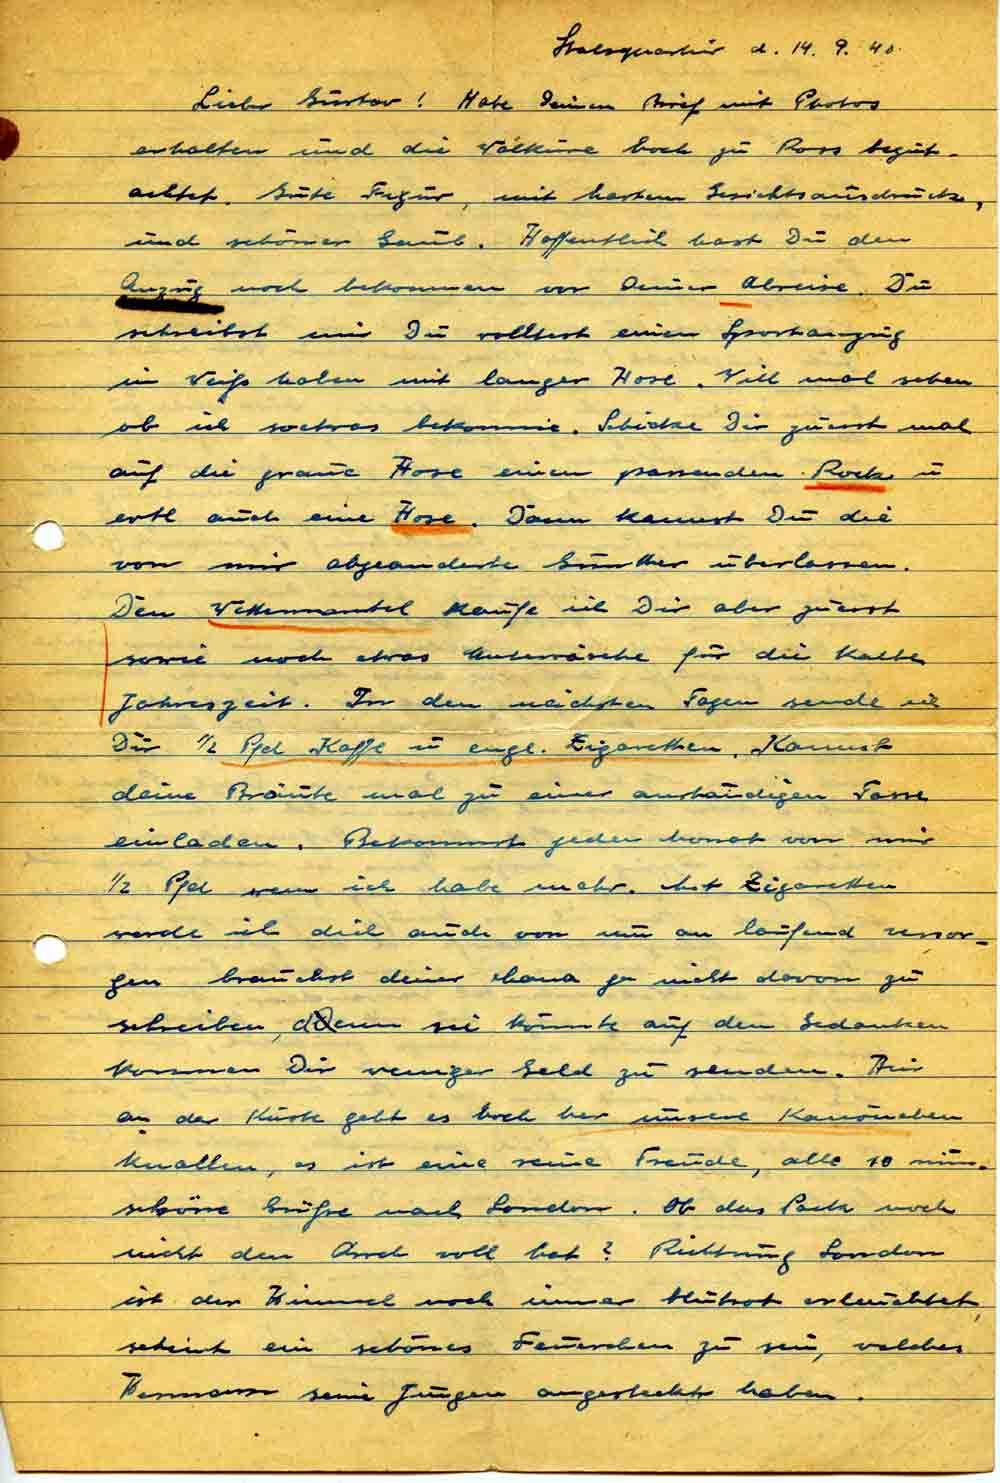 Stabsquartier d. 14. 9. 40.
Lieber Gustav! Habe deinen Brief mit Photos
erhalten und die Walküre hoch zu Ross begut-
achtet. Gute Figur, mit hartem Gesichtsausdrucke,
und schöner Gaul. Hoffentlich hast Du den
Anzug noch bekommen vor deiner Abreise. Du
schreibst mir Du wolltest einen Sportanzug
in Weiss haben mit langer Hose. Will mal sehen
ob ich soetwas bekomme. Schicke Dir zuerst mal
auf die graue Hose einen passenden Rock u
evtl auch eine Hose. Dann kannst Du die
von mir abgeänderte Günther überlassen.
Den Wettermantel kaufe ich Dir aber zuerst
sowie noch etwas Unterwäsche für die kalte
Jahreszeit. In den nächsten Tagen sende ich
Dir 1/2 Pfd Kaffe u engl. Zigaretten. Kannst
deine Bräute mal zu einer anständigen Tasse
einladen. Bekommst jeden Monat von mir
1/2 Pfd wenn ich habe mehr. Mit Zigaretten
werde ich dich auch von nun an laufend versor-
gen brauchst deiner Mama ja nicht davon zu
schreiben, denn sie könnte auf den Gedanken
kommen Dir weniger Geld zu senden. Hir
an der Küste geht es hoch her unsere Kanönchen
knallen, es ist eine reine Freude, alle 10 min.
schöne Grüße nach London. Ob das Pack noch
nicht den Arsch voll hat? Richtung London
ist der Himmel noch immer blutrot erleuchtet,
scheint ein schönes Feuerchen zu sein, welches
Hermann seine Jungen angesteckt haben.